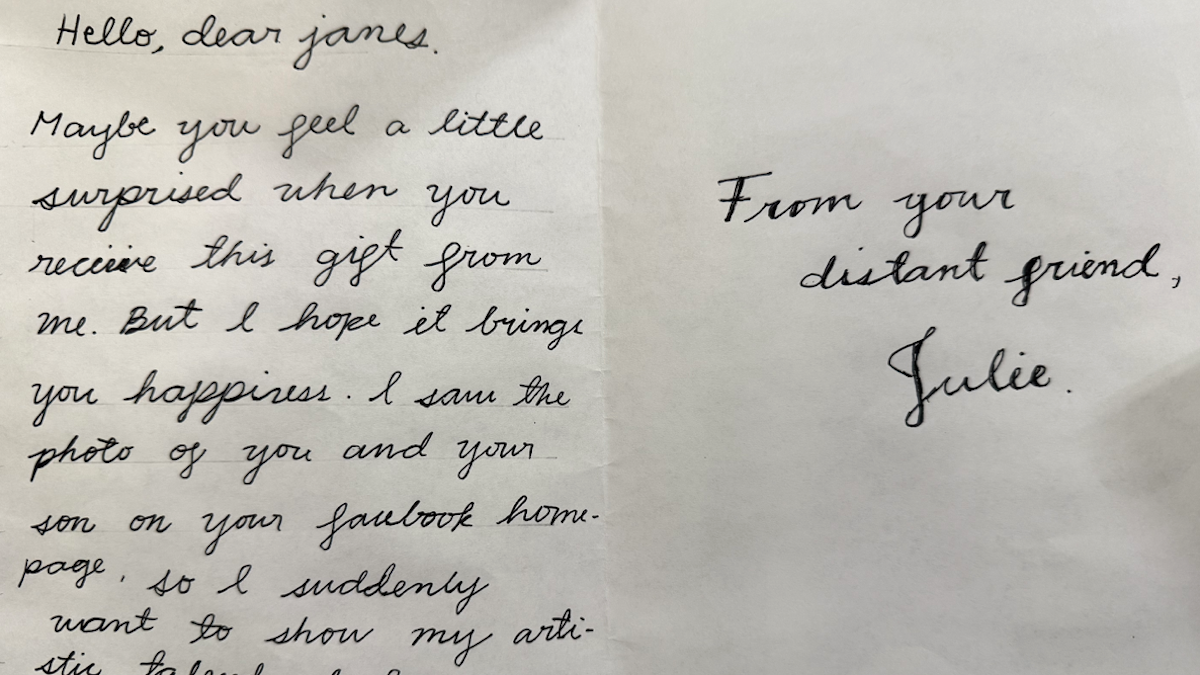 Hello, dear janes.
Maybe you feel a little
surprised when you
receive this gift from
me. But I hope it brings
you happiness. I saw the
photo of you and your
son on your facebook home-
page, so I suddenly
want to show my arti-
stic
From your
distant friend,
Julie.